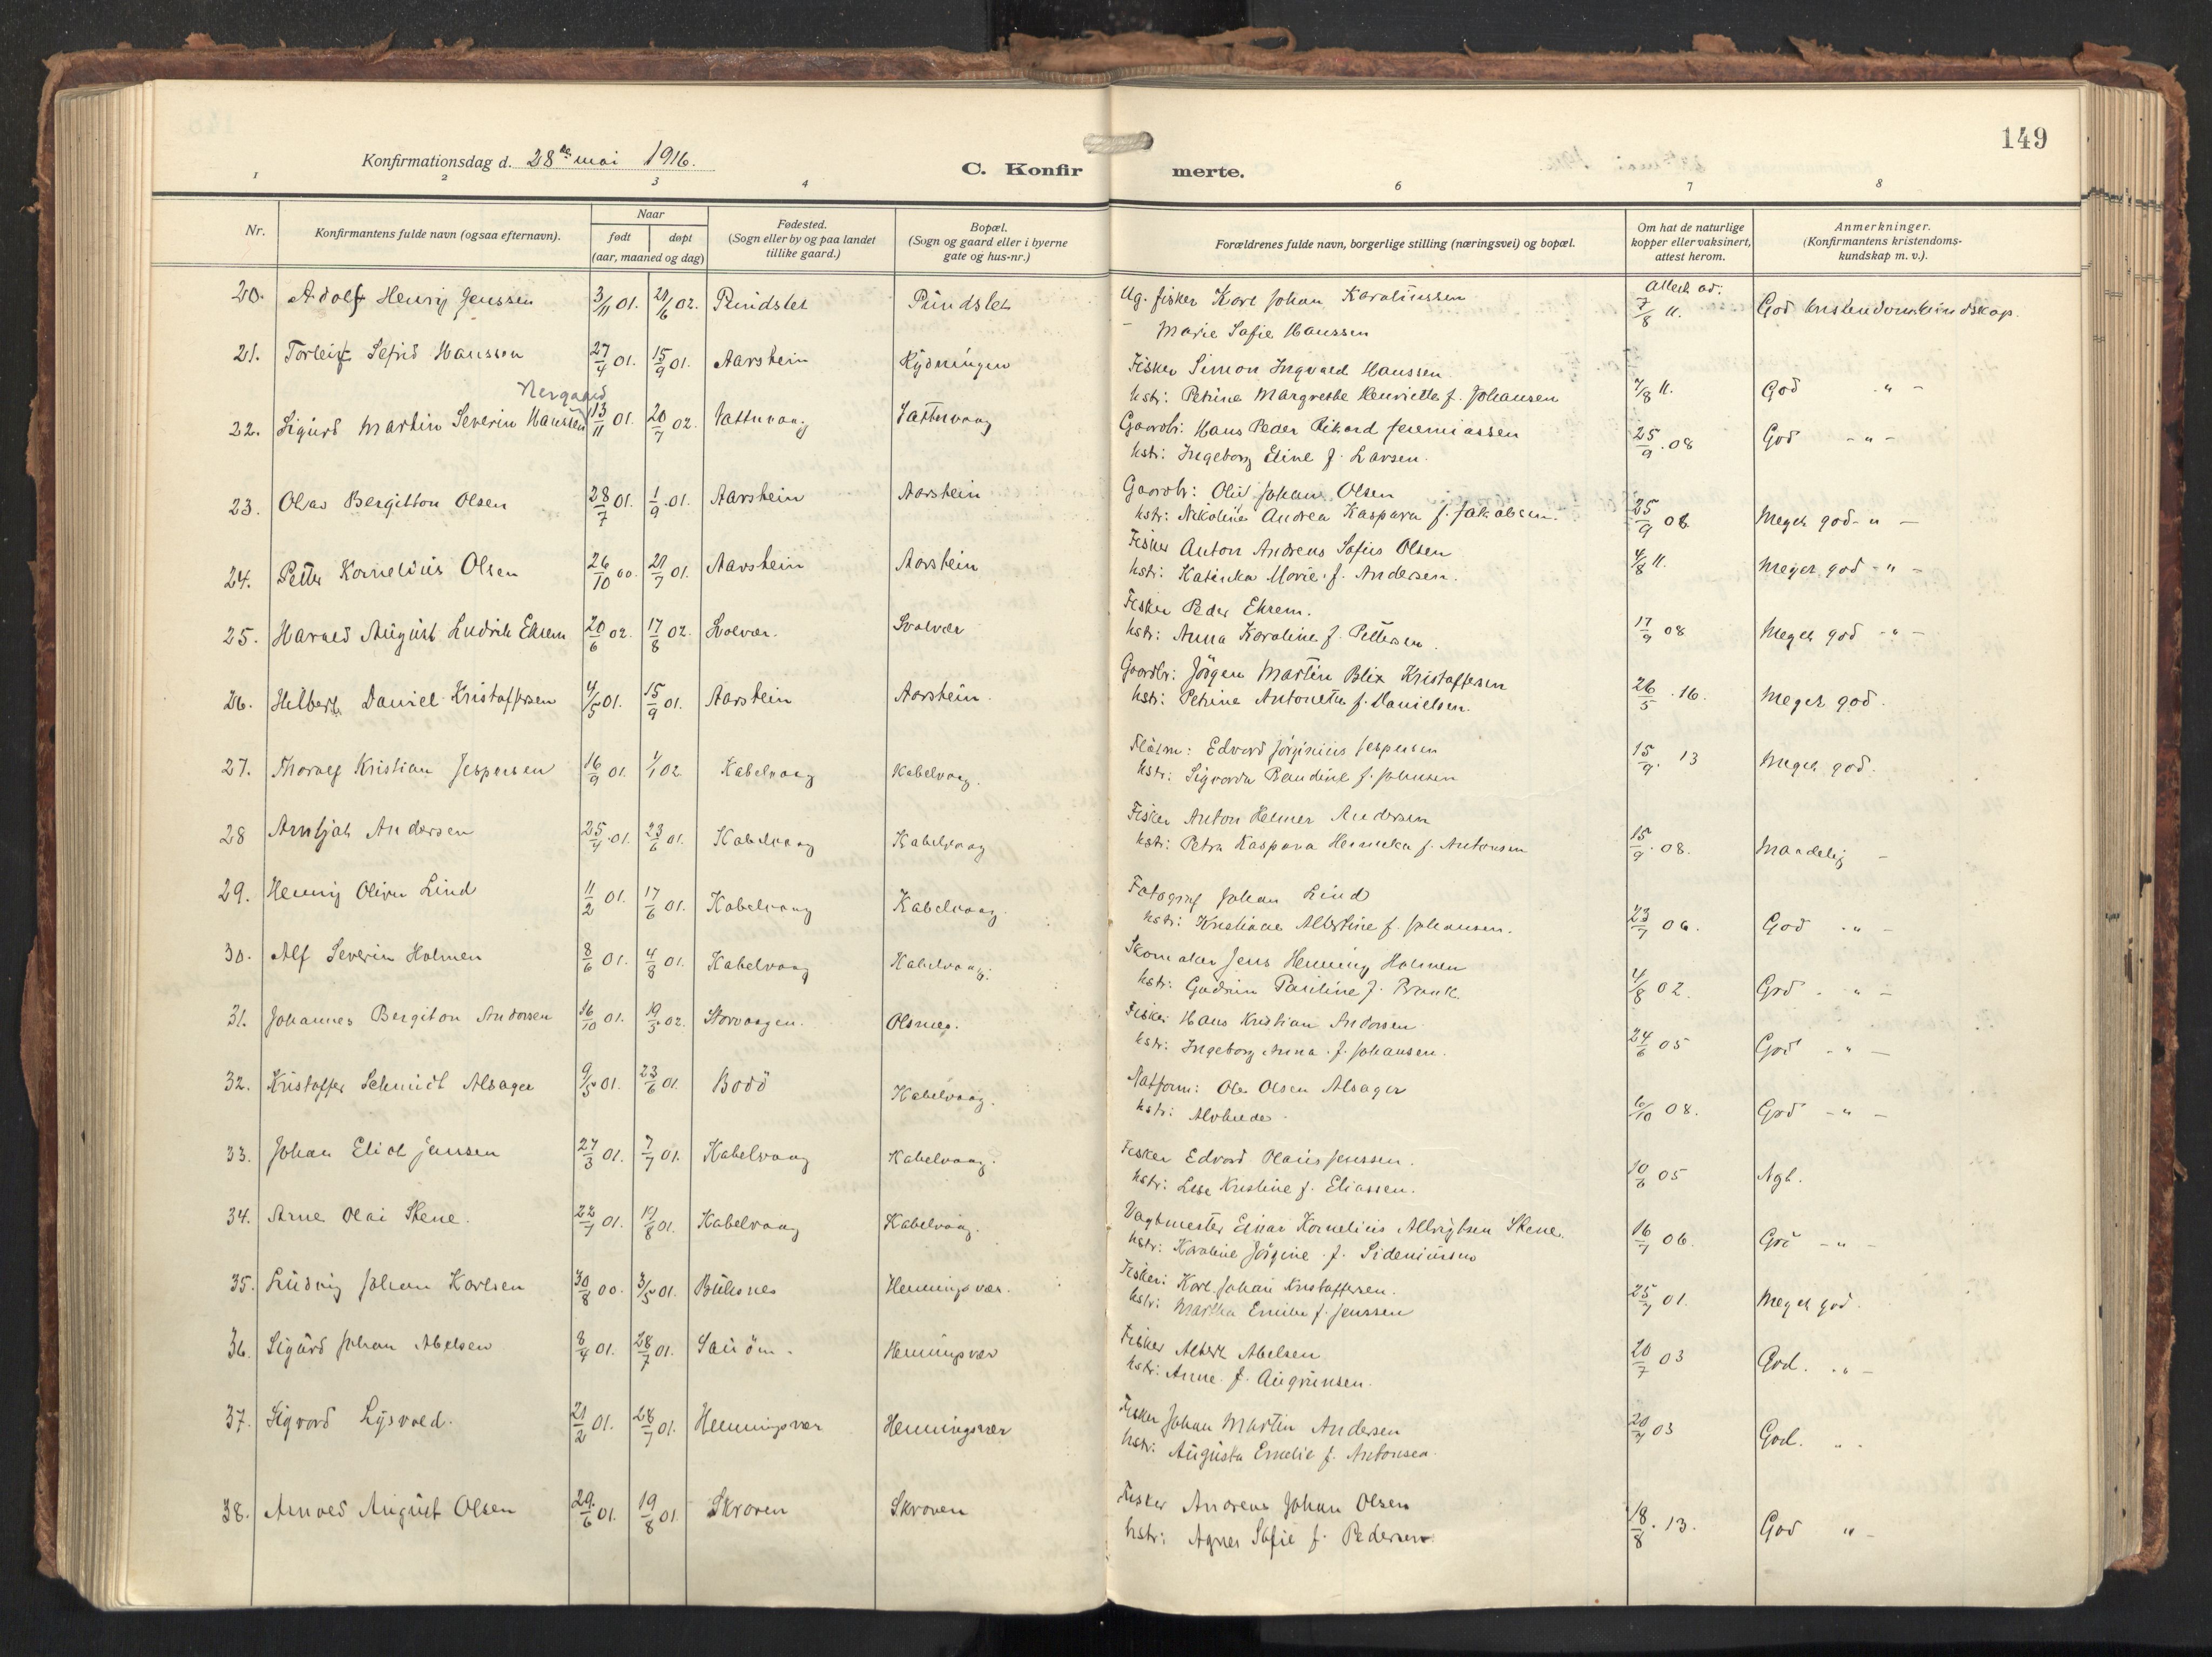 149
Konfirmationsdag d. 28de mai 1916.
C. Konfirmerte.
1 2 3 4 6 7 8
Nr.
Konfirmantens fulde navn (ogsaa efternavn).
Naar
født
døpt
(aar, maaned og dag)
Fødested.
(Sogn eller by og paa landet
tillike gaard.)
Bopæl.
(Sogn og gaard eller i byerne
gate og hus-nr.)
Forældrenes fulde navn, borgerlige stilling (næringsvei) og bopæl.
Om hat de naturlige
kopper eller vaksinert,
attest herom.
Anmerkninger.
(Konfirmantens kristendoms-
kundskap m. v.).
20. Adolf Henrij Jenssen 3/11 01. 21/6 02. Rindslet Rindslet Ug. fisker Karl Johan Karoliussen attest av: 7/8 11. God kristendomskundskap.
– Marie Sofie Hanssen
21. Torleif Sefrid Hanssen 27/4 01. 15/9 01. Aarstein Rydningen Fisker Simon Ingvald Hanssen 7/8 11. God " –
hstr: Petrine Margrethe Henriette f. Johansen
Nergaard
22. Sigurd Martin Severin Hanssen 13/11 01. 20/7 02. Vatturaag Vatturaag Gaardbr: Hans Peder Rikard Jeremiassen 25/9 .08 God – " –
hstr: Ingeborg Eline f. Larsen.
23. Olav Bergitton Olsen 28/7 01. 1/9 .01. Aarstein Aarstein Gaardbr: Oluf Johan Olsen 25/9 08 Meget god – " –
hstr: Nikoline Andrea Kaspara f. Jakobsen.
24. Petter Kornelius Olsen 26/10 00. 21/7 01. Aarstein Aarstein Fisker Anton Andreas Sofus Olsen 4/8 11. Meget god – " –
hstr: Katinka Marie f. Andersen.
25. Harald August Ludvik Ekrem 20/6 02. 17/8 02. Svolvær. Svolvær Fisker Peder Ekrem. 17/9 08 Meget god – " –
hstr: Anna Karoline f. Pettersen.
26. Hilbert Daniel Kristoffersen 4/5 01. 15/9 01. Aarstein Aarstein. Gaardbr: Jörgen Martin Blix Kristoffersen 26/5 .16. Meget god.
hstr: Petrine Antonette f. Danielsen.
27. Thoralf Kristian Jespersen 16/9 01. 1/1 02. Kabelvaag Kabelvaag. Edvard Jörginius Jespersen 15/9. 13 Meget god.
hstr: Sigvarda Baudine f. Johnsen
28 Arntjot Andersen 25/4 .01. 23/6 01. Kabelvaag Kabelvaag Fisker Anton Helmer Andersen 15/9 .08. Maadelig –
hstr: Petra Kaspara Henrikka f. Antonsen
29. Henrij Oliver Lind 11/2 01. 17/6 01. Kabelvaag Kabelvaag. Fotograf Johan Lind 23/7 06. God . " –
hstr: Kristiane Albertine f. Johansen.
30. Alf Severin Holmen 8/6 01. 4/8 01. Kabelvaag Kabelvaag. Skomaker Jens Henning Holmen 4/8 02. God . " –
hstr: Gudrun Pauline f. Brauk.
31. Johannes Bergiton Andersen 16/10 01. 19/5 02. Storvaagen. Olsneg. Fisker Hans Kristian Andersen 24/6 05 God – " –
hstr: Ingeborg Anna f. Johansen.
32. Kristoffer Schmidt Alsager 9/5 01. 23/6 01. Bodö Kabelvaag. Natform: Ole Olsen Alsager 6/10 08. God – " –
hstr: Alvhilde.
33. Johan Eliot Jensen 27/3 01. 7/7 01. Kabelvaag Kabelvaag. Fisker Edvard Olaus Jenssen. 10/6 05 Ngl.
hstr: Lise Kristine f. Eliassen.
34. Arne Olai Skene. 22/7 01. 19/8 01. Kabelvaag Kabelvaag. Vagtmester Einar Kornelius Albrigtsen Skene. 16/7 06. God – " –
hstr: Karoline Jörgine f. Sideniussen
35. Ludvig Johan Karlsen 30/8 00. 3/5 01. Buksnes Henningsvær. Fisker: Karl Johan Kristoffersen. 25/7 01. Meget god.
hstr: Martha Emilie f. Jenssen
36. Sigurd Johan Abelsen 8/4 01. 28/7 01. Sauöen. Henningsvær Fisker Albert Abelsen 20/7 03 God. . " –
hstr: Anne f. Augrunsen.
37. Sigvard Lysvold. 21/2 01. 28/7 01. Henningsvær Henningsvær Fisker Johan Martin Andersen 20/7 03 God. " .
hstr. Augusta Emelie f. Antonsen.
38. Arnold August Olsen 29/6 01. 19/8 01. Skroven Skroven Fisker Andreas Johan Olsen 18/8 . 13. God " –
hstr: Agnes Sofie f. Pedersen.